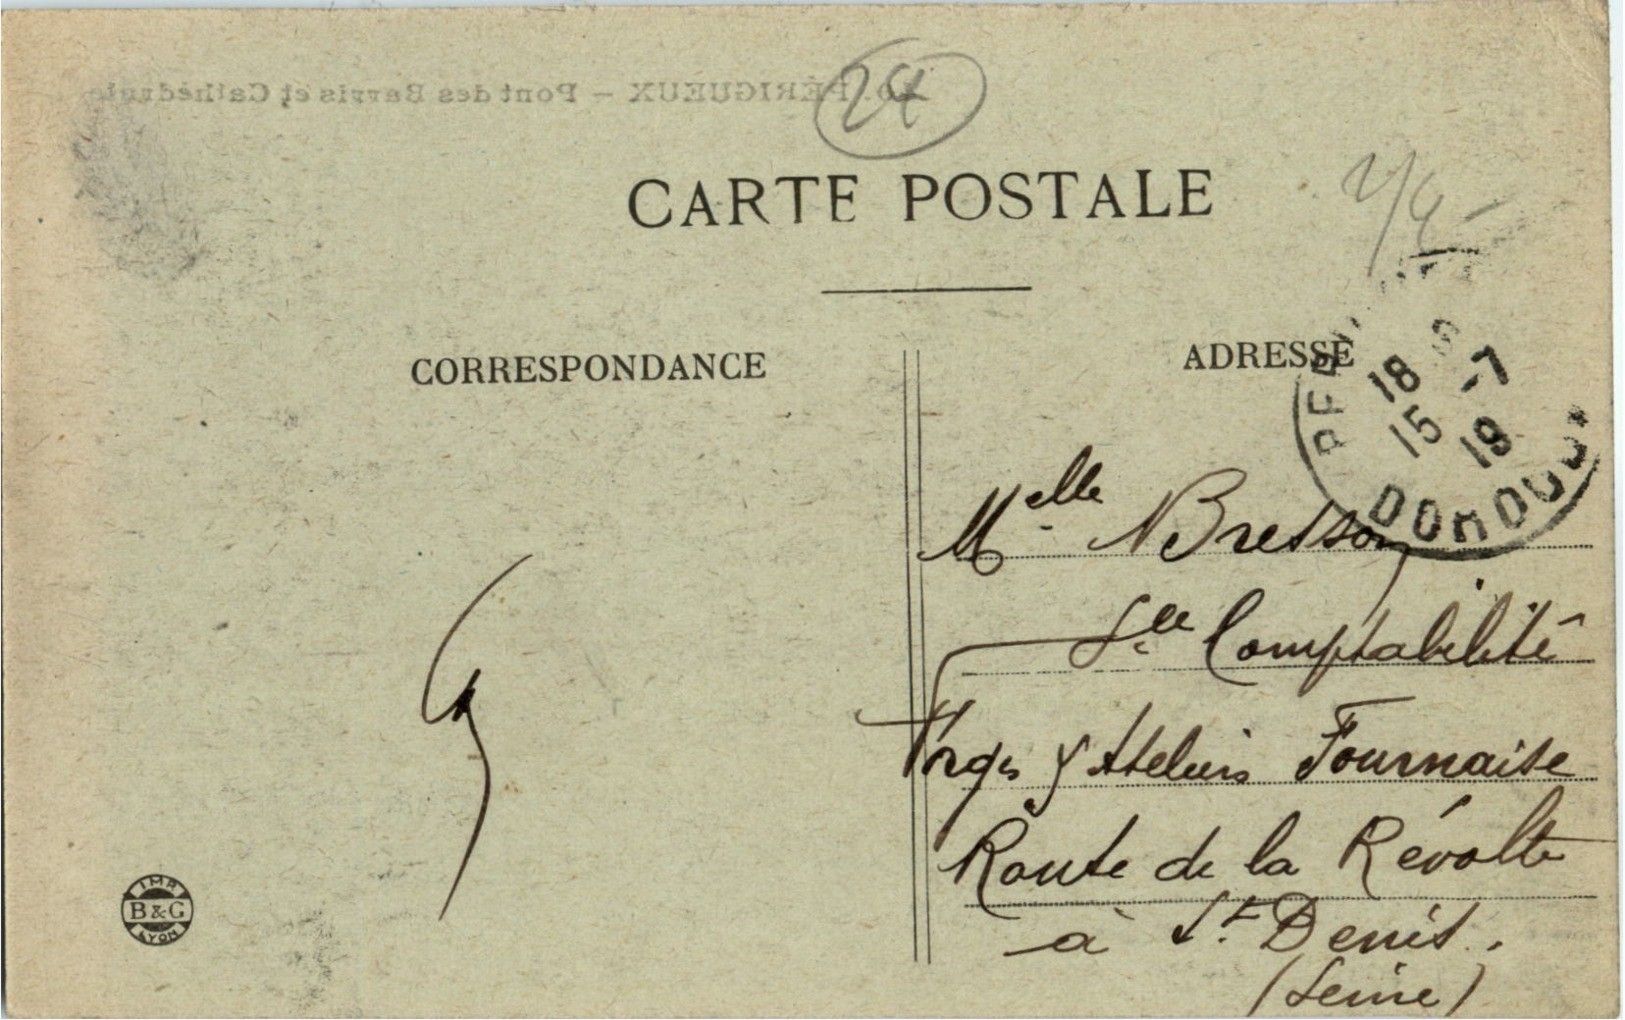 PÉRIGUEUX — Pont des Barris et Cathédrale
24
CARTE POSTALE
CORRESPONDANCE
ADRESSE
18 -7
15 19
DORDOGNE
Melle N Bresson
Sce Comptabilité
Forges & Ateliers Fournaise
Route de la Révolte
à St Denis.
(Seine)
IMP.
B & G
LYON